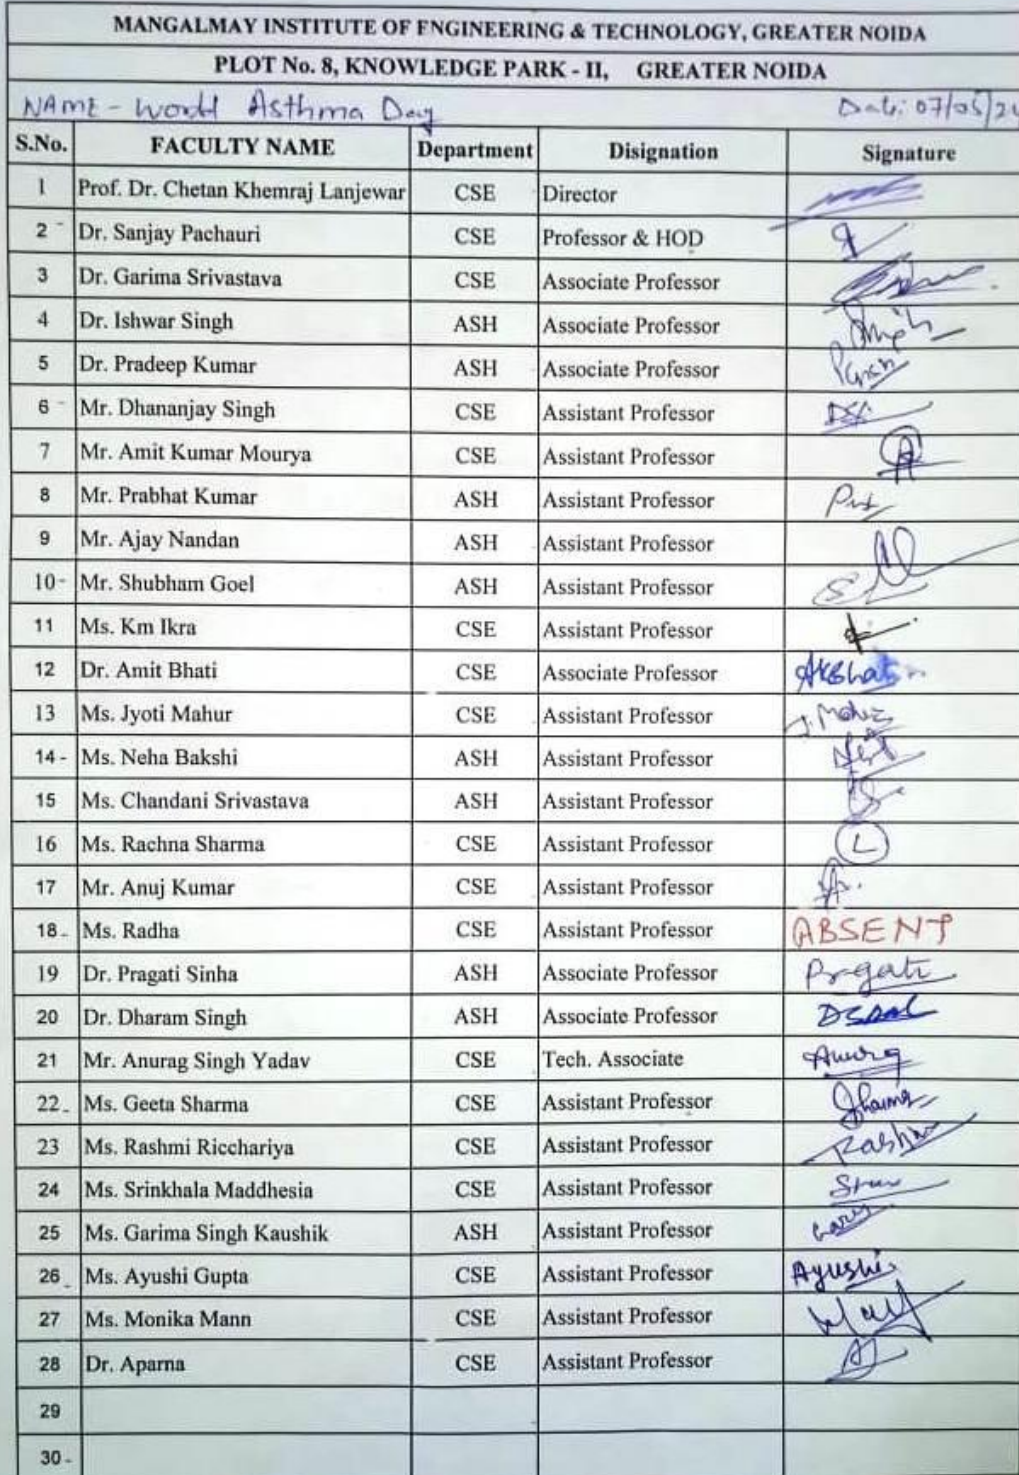 MANGALMAY INSTITUTE OF ENGINEERING & TECHNOLOGY, GREATER NOIDA
PLOT No. 8, KNOWLEDGE PARK - II, GREATER NOIDA
NAME - World Asthma Day Date: 07/05/24
S.No. FACULTY NAME Department Disignation Signature
1 Prof. Dr. Chetan Khemraj Lanjewar CSE Director
2 - Dr. Sanjay Pachauri CSE Professor & HOD
3 Dr. Garima Srivastava CSE Associate Professor
4 Dr. Ishwar Singh ASH Associate Professor
5 Dr. Pradeep Kumar ASH Associate Professor
6 - Mr. Dhananjay Singh CSE Assistant Professor
7 Mr. Amit Kumar Mourya CSE Assistant Professor
8 Mr. Prabhat Kumar ASH Assistant Professor
9 Mr. Ajay Nandan ASH Assistant Professor
10 - Mr. Shubham Goel ASH Assistant Professor
11 Ms. Km Ikra CSE Assistant Professor
12 Dr. Amit Bhati CSE Associate Professor
13 Ms. Jyoti Mahur CSE Assistant Professor
14 - Ms. Neha Bakshi ASH Assistant Professor
15 Ms. Chandani Srivastava ASH Assistant Professor
16 Ms. Rachna Sharma CSE Assistant Professor L
17 Mr. Anuj Kumar CSE Assistant Professor
18 - Ms. Radha CSE Assistant Professor ABSENT
19 Dr. Pragati Sinha ASH Associate Professor
20 Dr. Dharam Singh ASH Associate Professor
21 Mr. Anurag Singh Yadav CSE Tech. Associate
22 - Ms. Geeta Sharma CSE Assistant Professor
23 Ms. Rashmi Ricchariya CSE Assistant Professor
24 Ms. Srinkhala Maddhesia CSE Assistant Professor
25 Ms. Garima Singh Kaushik ASH Assistant Professor
26 - Ms. Ayushi Gupta CSE Assistant Professor Ayushi
27 Ms. Monika Mann CSE Assistant Professor
28 Dr. Aparna CSE Assistant Professor
29
30 -